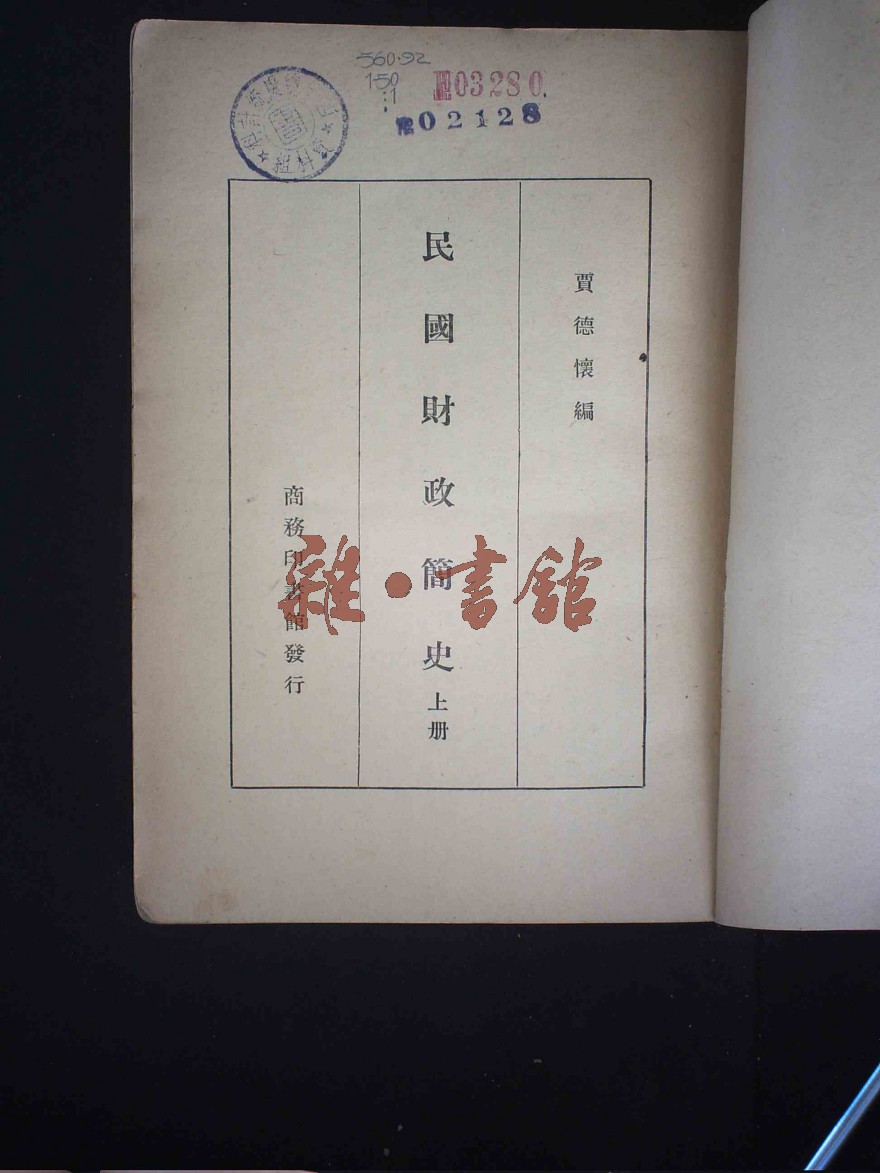 560.92
150
:1
03280
02128
賈德懷編
民國財政簡史 上册
商務印書館發行
雜·書館